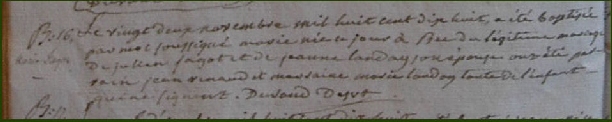 B: 16. Le vingt deux novembre mil huit cent dix huit, a été baptisée
par moi soussigné marie née ce jour à du légitime mariage
De julien fagot et de jeanne landay son épouse ont été par
rain jean renaud et marraine marie landay tante de l'enfant
qui ne signent. Durand Desst
B: 17.